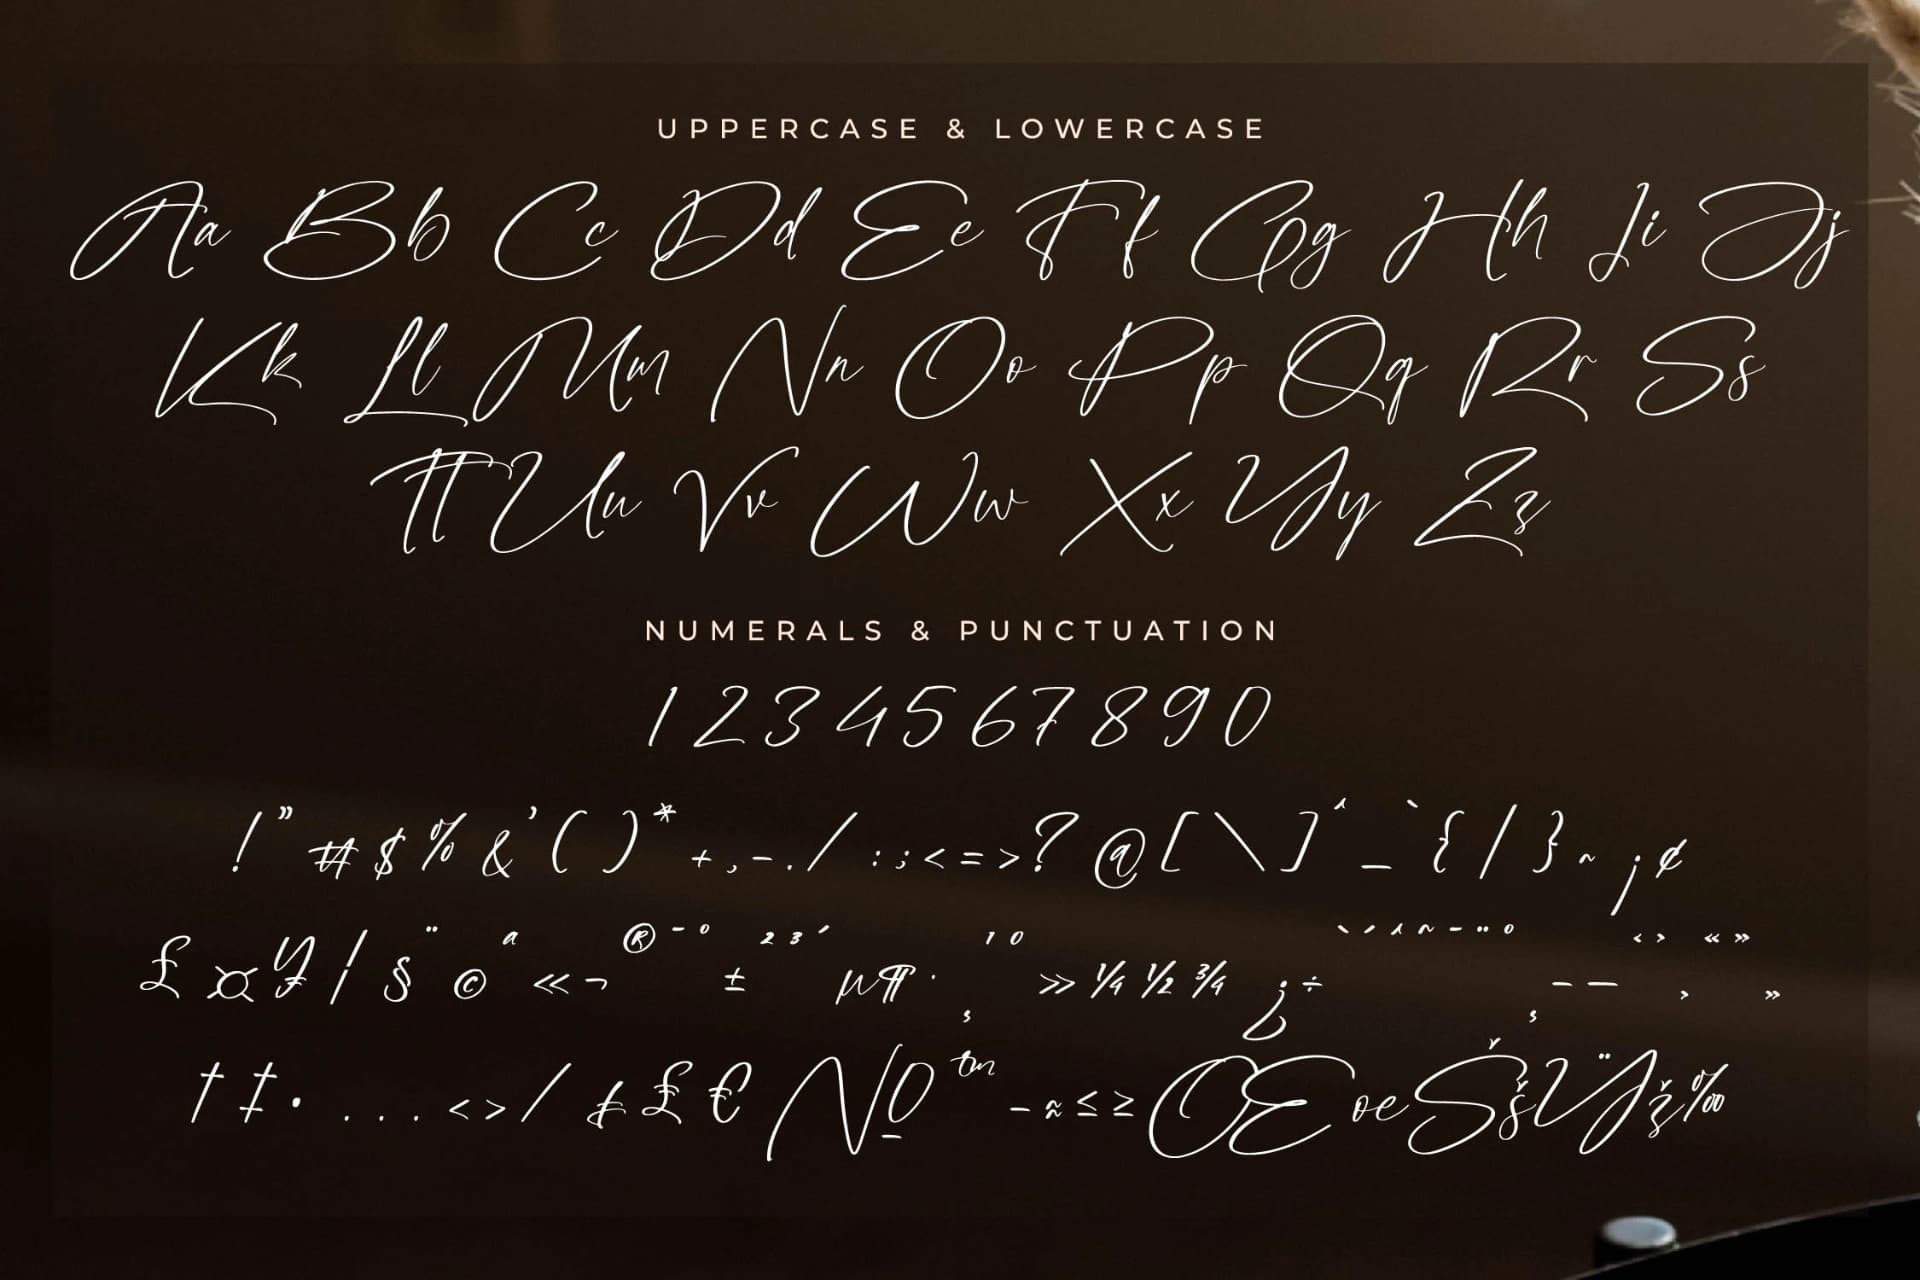 UPPERCASE & LOWERCASE
Aa Bb Cc Dd Ee Ff Gg Hh Ii Jj
Kk Ll Mm Nn Oo Pp Qq Rr Ss
Tt Uu Vv Ww Xx Yy Zz
NUMERALS & PUNCTUATION
1 2 3 4 5 6 7 8 9 0
! " # $ % & ' ( ) * + , - . / : ; < = > ? @ [ \ ] ^ _ ` { | } ~ ¡ ¢
£ ¤ ¥ ¦ § ¨ © ª « ¬ ® ¯ ° ± ² ³ ´ µ ¶ · ¸ ¹ º » ¼ ½ ¾ ¿ ÷ – — ‹ › « »
† ‡ • . . . < > / ₤ € № ™ − ≈ ≤ ≥ Œ œ Š š Ÿ ž ‰